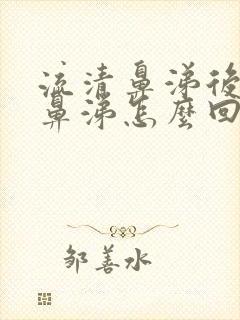 流清鼻涕後
鼻涕怎麼回
邹善水